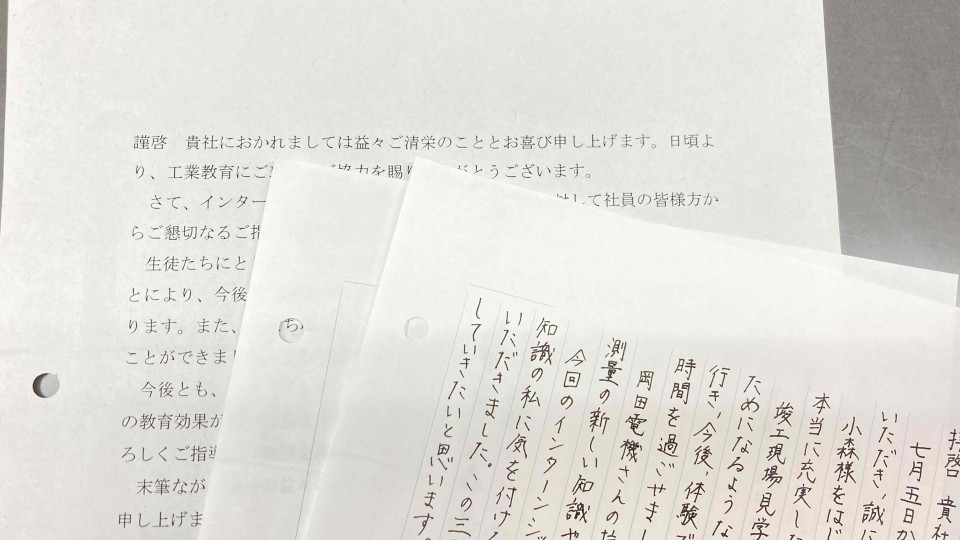 謹啓 貴社におかれましては益々ご清栄のこととお喜び申し上げます。日頃よ
り、工業教育にご 協力を賜り がとうございます。
さて、インター 対して社員の皆様方か
らご懇切なるご指
生徒たちにと
とにより、今後
ります。また、
ことができまし
今後とも、
の教育効果が
ろしくご指導
末筆なが
申し上げま
ち
拝啓 貴社
七月五日か
いただき、誠に
小森様をはじ
本当に充実した
竣工現場見学
ためになるような
行き、今後、体験で
時間を過ごせまし
岡田電機さんの
測量の新しい知識や
今回のインターンシッ
知識の私に気を付ける
いただきました。この三
していきたいと思います。